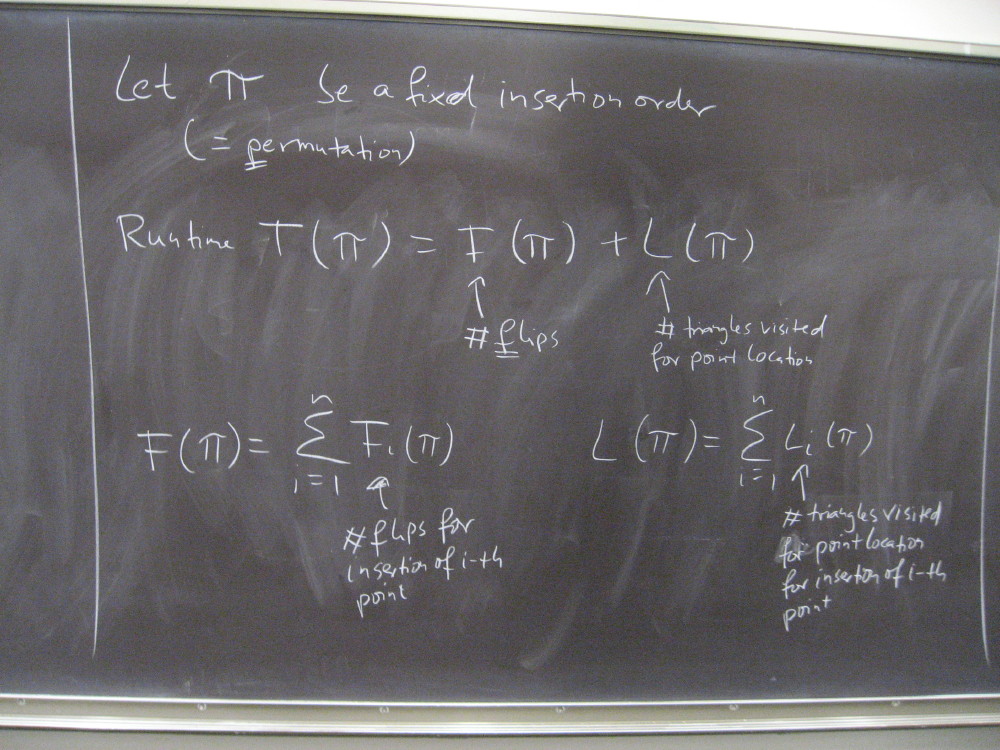 Let π be a fixed insertion order
(= permutation)
Runtime T(π) = F(π) + L(π)
# flips
# triangles visited
for point location
F(π) = ∑_{i=1}^{n} F_i(π)
# flips for
insertion of i-th
point
L(π) = ∑_{i=1}^{n} L_i(π)
# triangles visited
for point location
for insertion of i-th
point